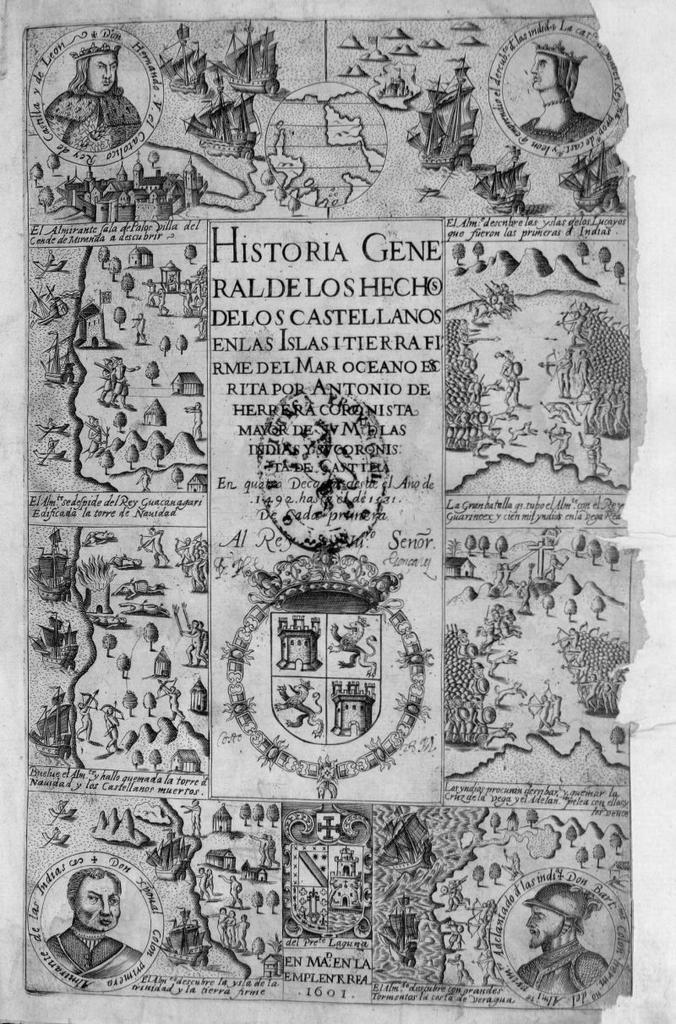 Don Hernando V el Catolico Rey de Castilla y de Leon
El Almirante sala de Palos Villa del
Conde de Miranda a descubrir
El Alm.te descubre las yslas delos Lucayos
que fueron las primeras d Indias
HISTORIA GENE
RAL DE LOS HECHOS
DE LOS CASTELLANOS
EN LAS ISLAS I TIERRA FI
RME DEL MAR OCEANO ES
RITA POR ANTONIO DE
HERRERA CORONISTA
MAYOR DE SV M.D DE LAS
INDIAS Y SV CORONIS
TA DE CASTILLA
En quatro Decadas desde el Año de
1492 hasta el de 1531.
Decada primera
Al Rey Nu.ro Señor.
El Alm.te se despide del Rey Guacanagari
Edificada la torre de Navidad
La Gran batalla q. tubo el Alm.te con el Rey
Guarinoex y cien mil yndios en la vega Real
Buelue el Alm.te y hallo quemada la torre d
Navidad y los Castellanos muertos.
Los yndios procuran derribar, y quemar la
Cruz de la vega y el Adelan.do pelea con ellos y
los vence
Don Cristoual Colon primero Almirante de las Indias
Don Bart.me Colon
Adelantado d las indi.s
El Alm.te descubre la ysla de la
trinidad y la tierra firme
del Pres.te Laguna
EN MAD. EN LA
EMPLENTA REA
.1601.
El Alm.te descubre con grandes
Tormentos la costa de veragua